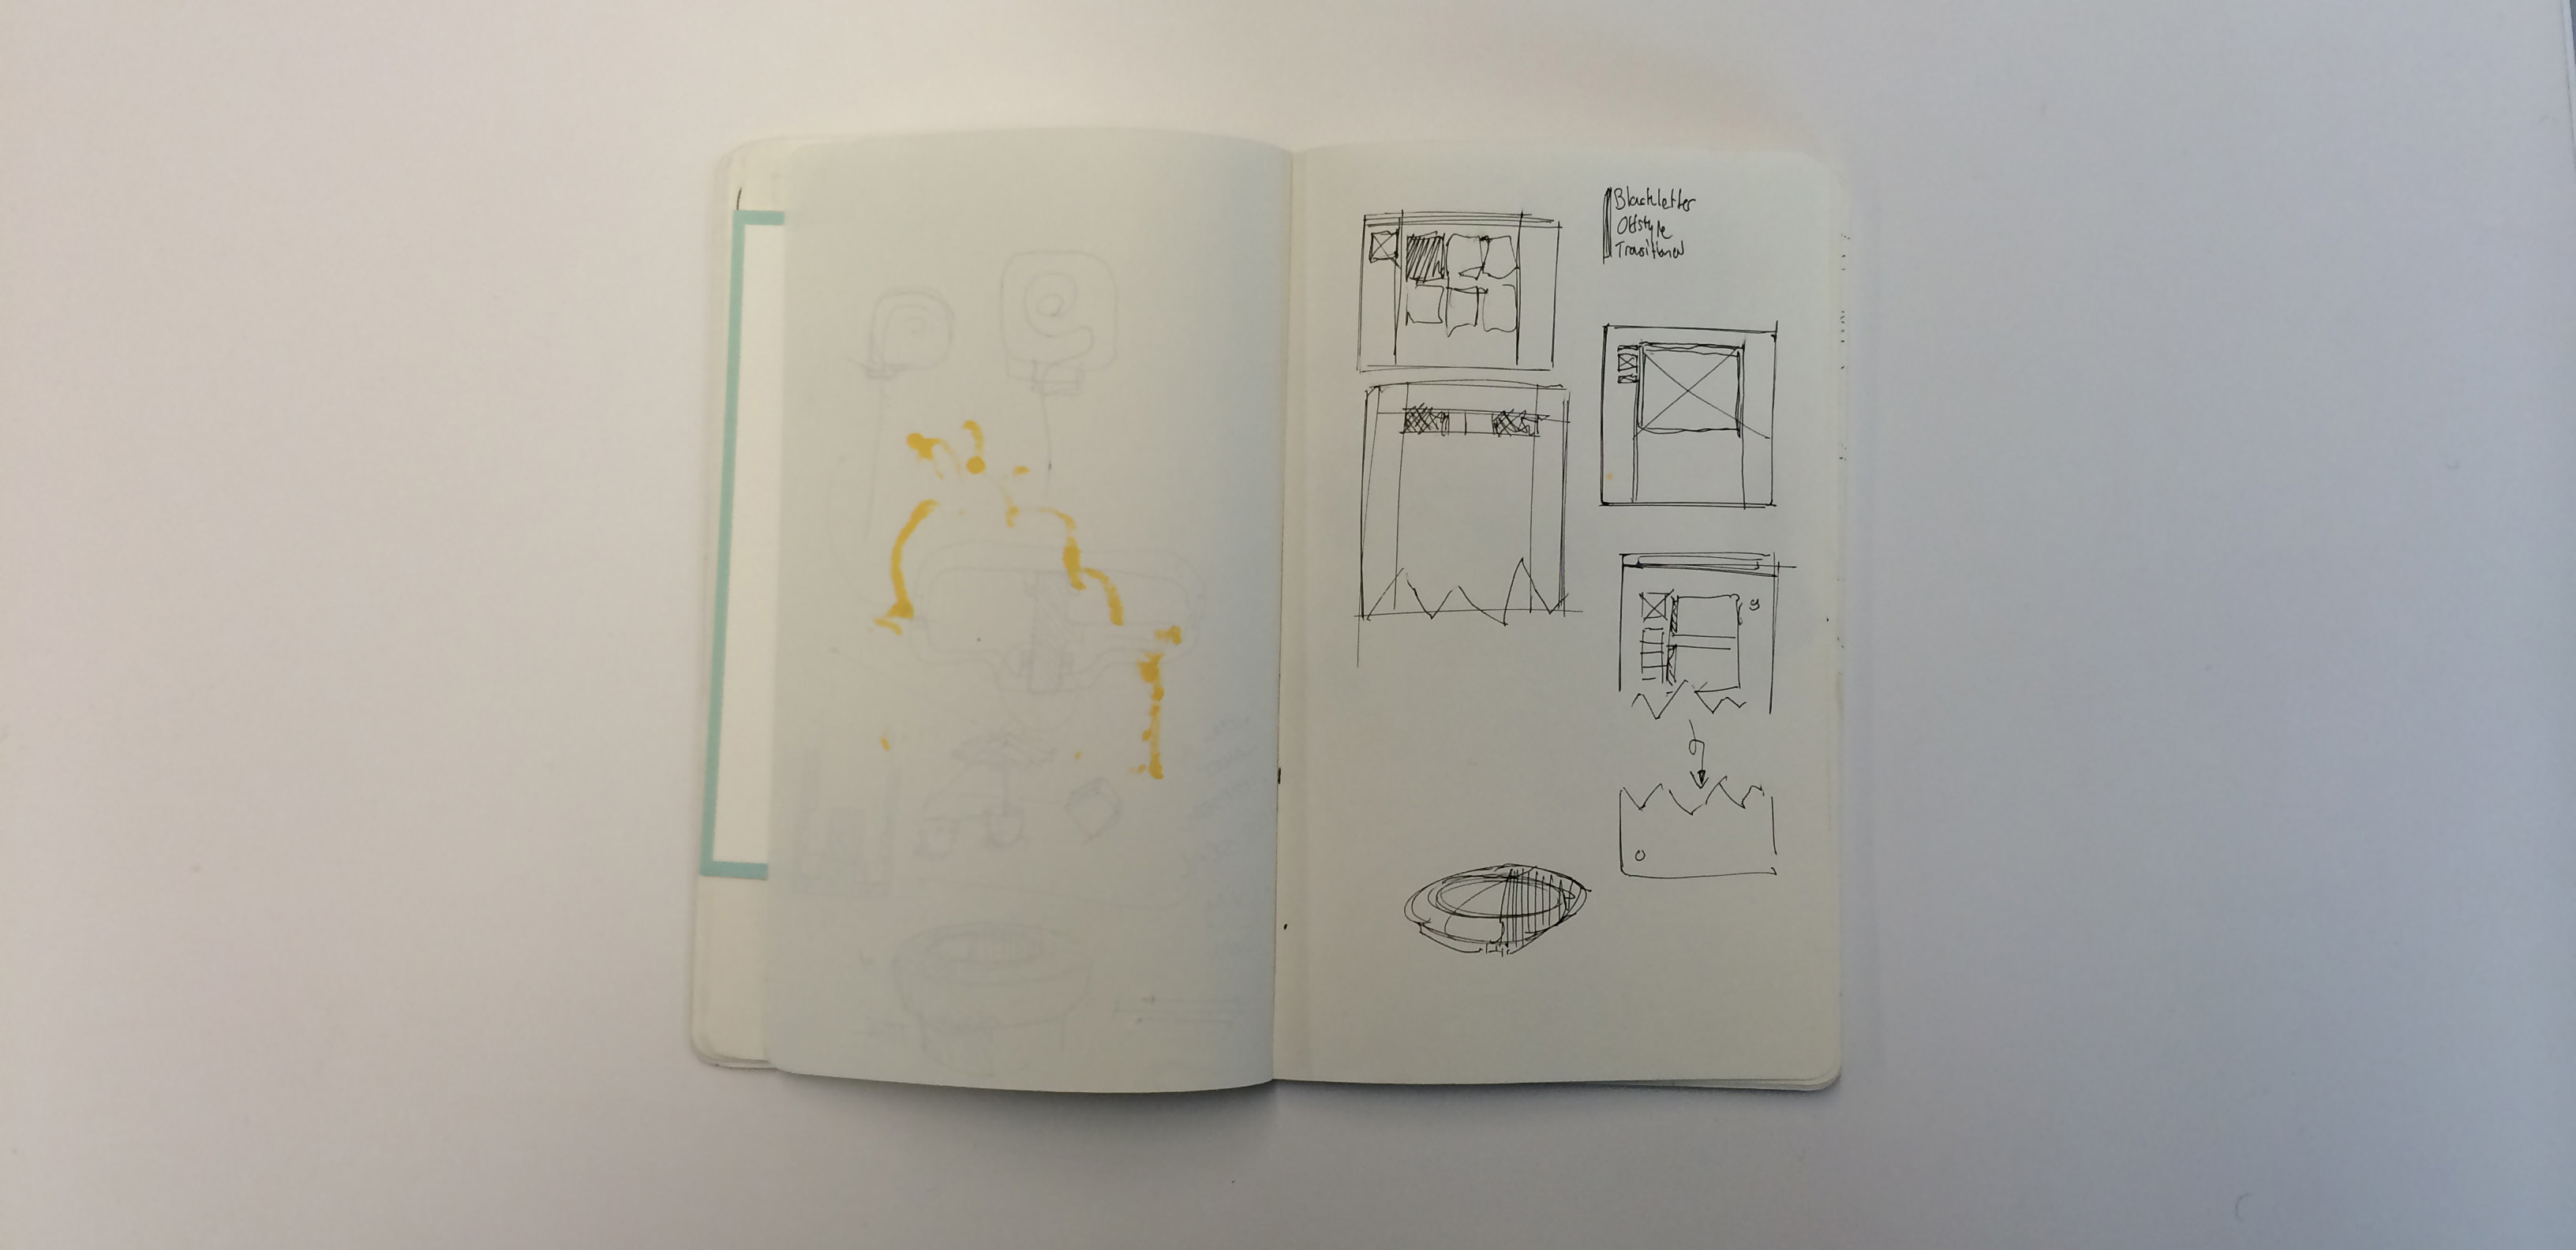 Blackletter
Oldstyle
Transitional